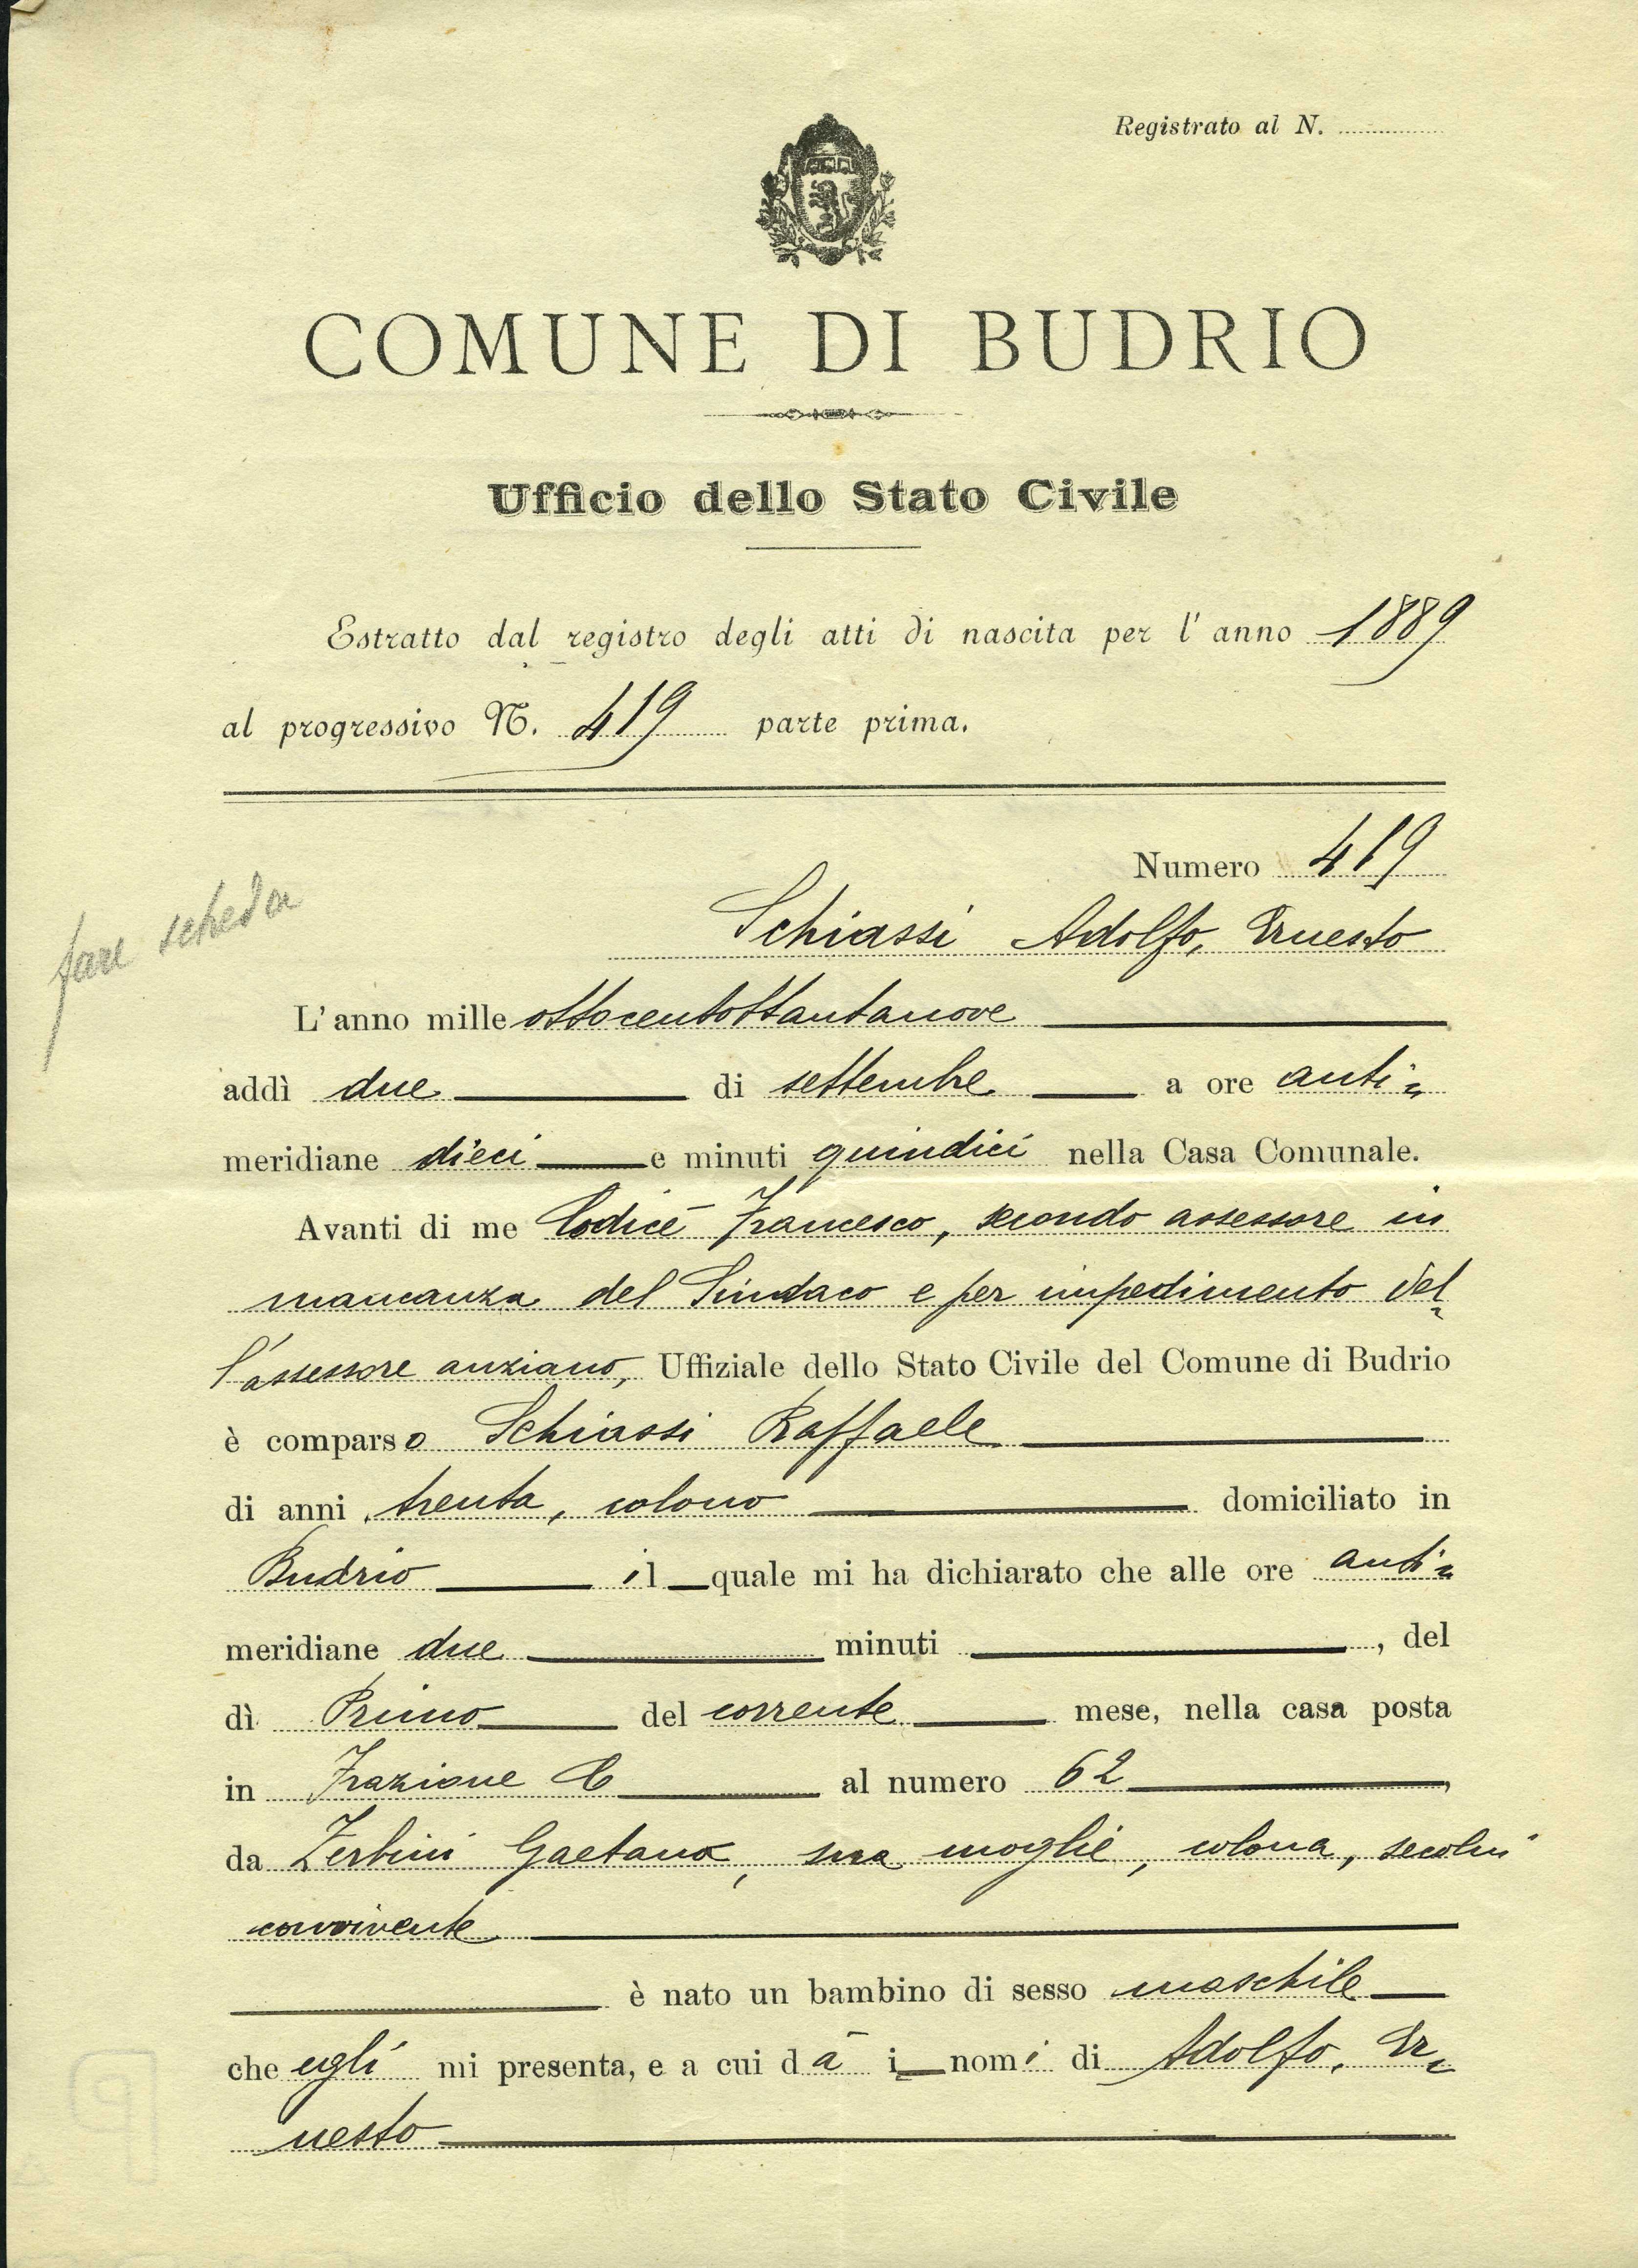 Registrato al N.
COMUNE DI BUDRIO
Ufficio dello Stato Civile
Estratto dal registro degli atti di nascita per l'anno 1889
al progressivo N. 419 parte prima.
Numero 419
fare scheda
Schiassi Adolfo, Ernesto
L'anno mille ottocentottantanove
addì due di settembre a ore anti=
meridiane dieci e minuti quindici nella Casa Comunale.
Avanti di me Codicé Francesco, secondo assessore in
mancanza del Sindaco e per impedimento del=
l'assessore anziano, Uffiziale dello Stato Civile del Comune di Budrio
è comparso Schiassi Raffaele
di anni trenta, colono domiciliato in
Budrio il quale mi ha dichiarato che alle ore anti=
meridiane due minuti , del
dì Primo del corrente mese, nella casa posta
in Frazione C al numero 62,
da Zerbini Gaetana, sua moglie, colona, secolui
convivente
è nato un bambino di sesso maschile
che egli mi presenta, e a cui dà i nomi di Adolfo, Er=
nesto